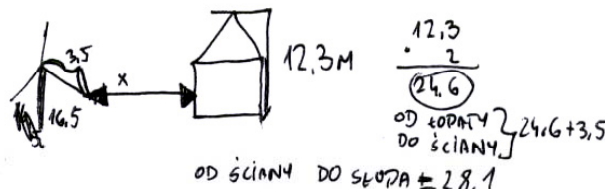 3,5
x
16,5
12,3 M
12,3
· 2
24,6
OD ŁOPATY
DO ŚCIANY } 24,6+3,5
OD ŚCIANY DO SŁUPA = 28,1